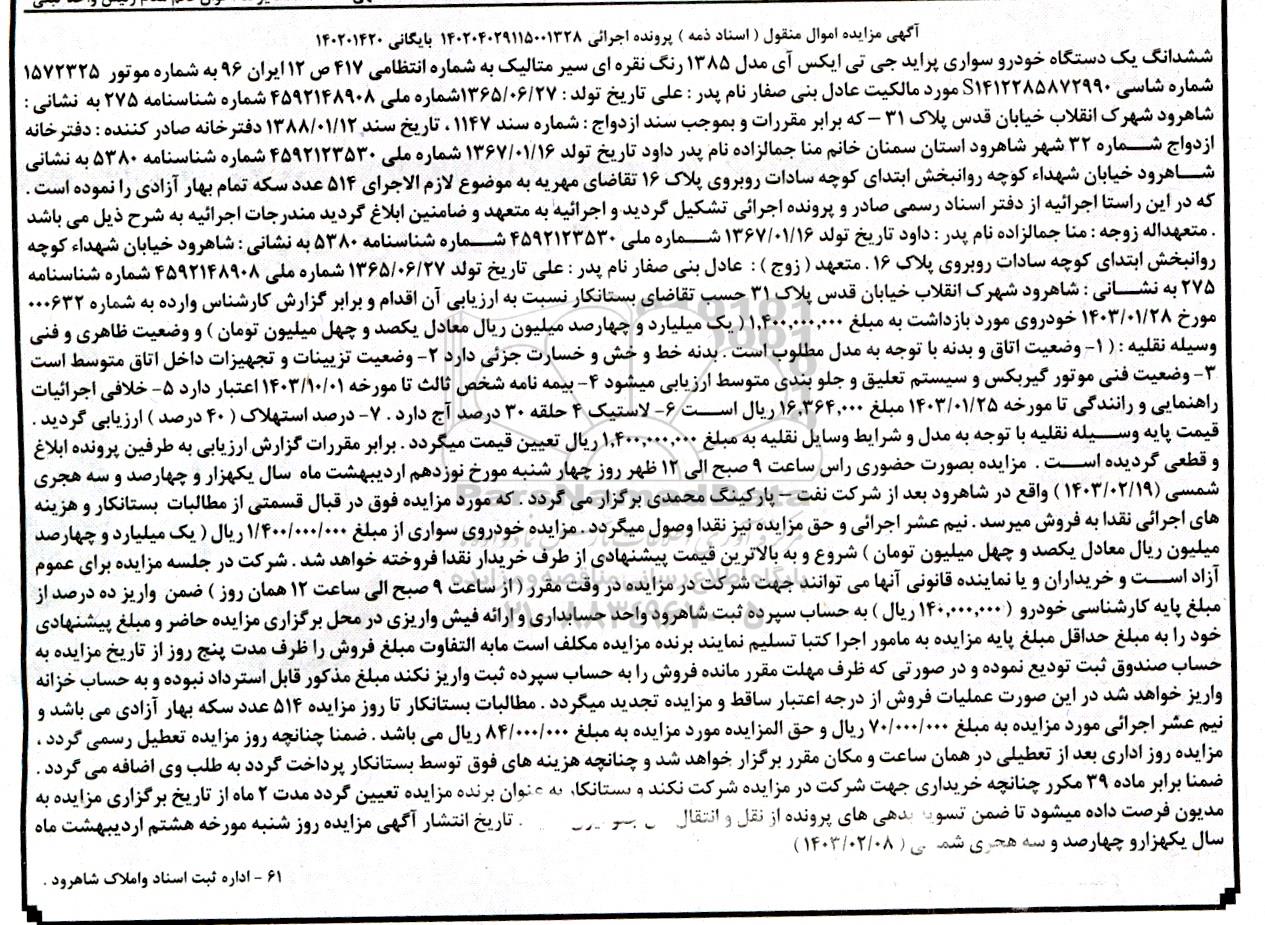 آگهی مزایده اموال منقول ( اسناد ذمه ) پرونده اجرائی ۱۴۰۲۰۴۰۲۹۱۱۵۰۰۱۳۲۸ بایگانی ۱۴۰۲۰۱۴۲۰
ششدانگ یک دستگاه خودرو سواری پراید جی تی ایکس آی مدل ۱۳۸۵ رنگ نقره ای سیر متالیک به شماره انتظامی ۴۱۷ ص ۱۲ ایران ۹۶ به شماره موتور ۱۵۷۲۳۲۵
شماره شاسی S۱۴۱۲۲۸۵۸۷۲۹۹۰ مورد مالکیت عادل بنی صفار نام پدر : علی تاریخ تولد : ۱۳۶۵/۰۶/۲۷شماره ملی ۴۵۹۲۱۴۸۹۰۸ شماره شناسنامه ۲۷۵ به نشانی :
شاهرود شهرک انقلاب خیابان قدس پلاک ۳۱ – که برابر مقررات و بموجب سند ازدواج : شماره سند ۱۱۴۷ ، تاریخ سند ۱۳۸۸/۰۱/۱۲ دفترخانه صادر کننده : دفترخانه
ازدواج شماره ۳۲ شهر شاهرود استان سمنان خانم منا جمالزاده نام پدر داود تاریخ تولد ۱۳۶۷/۰۱/۱۶ شماره ملی ۴۵۹۲۱۲۳۵۳۰ شماره شناسنامه ۵۳۸۰ به نشانی
شاهرود خیابان شهداء کوچه روانبخش ابتدای کوچه سادات روبروی پلاک ۱۶ تقاضای مهریه به موضوع لازم الاجرای ۵۱۴ عدد سکه تمام بهار آزادی را نموده است .
که در این راستا اجرائیه از دفتر اسناد رسمی صادر و پرونده اجرائی تشکیل گردید و اجرائیه به متعهد و ضامنین ابلاغ گردید مندرجات اجرائیه به شرح ذیل می باشد
. متعهداله زوجه : منا جمالزاده نام پدر : داود تاریخ تولد ۱۳۶۷/۰۱/۱۶ شماره ملی ۴۵۹۲۱۲۳۵۳۰ شماره شناسنامه ۵۳۸۰ به نشانی : شاهرود خیابان شهداء کوچه
روانبخش ابتدای کوچه سادات روبروی پلاک ۱۶ . متعهد ( زوج ) : عادل بنی صفار نام پدر : علی تاریخ تولد ۱۳۶۵/۰۶/۲۷ شماره ملی ۴۵۹۲۱۴۸۹۰۸ شماره شناسنامه
۲۷۵ به نشانی : شاهرود شهرک انقلاب خیابان قدس پلاک ۳۱ حسب تقاضای بستانکار نسبت به ارزیابی آن اقدام و برابر گزارش کارشناس وارده به شماره ۰۰۰۶۳۲
مورخ ۱۴۰۳/۰۱/۲۸ خودروی مورد بازداشت به مبلغ ۱,۴۰۰,۰۰۰,۰۰۰ ( یک میلیارد و چهارصد میلیون ریال معادل یکصد و چهل میلیون تومان ) و وضعیت ظاهری و فنی
وسیله نقلیه : ( ۱- وضعیت اتاق و بدنه با توجه به مدل مطلوب است . بدنه خط و خش و خسارت جزئی دارد ۲- وضعیت تزیینات و تجهیزات داخل اتاق متوسط است
۳- وضعیت فنی موتور گیربکس و سیستم تعلیق و جلو بندی متوسط ارزیابی میشود ۴- بیمه نامه شخص ثالث تا مورخه ۱۴۰۳/۱۰/۰۱ اعتبار دارد ۵- خلافی اجرائیات
راهنمایی و رانندگی تا مورخه ۱۴۰۳/۰۱/۲۵ مبلغ ۱۶,۳۶۴,۰۰۰ ریال است ۶- لاستیک ۴ حلقه ۳۰ درصد آج دارد . ۷- درصد استهلاک ( ۴۰ درصد ) ارزیابی گردید .
قیمت پایه وسیله نقلیه با توجه به مدل و شرایط وسایل نقلیه به مبلغ ۱,۴۰۰,۰۰۰,۰۰۰ ریال تعیین قیمت میگردد . برابر مقررات گزارش ارزیابی به طرفین پرونده ابلاغ
و قطعی گردیده است . مزایده بصورت حضوری راس ساعت ۹ صبح الی ۱۲ ظهر روز چهار شنبه مورخ نوزدهم اردیبهشت ماه سال یکهزار و چهارصد و سه هجری
شمسی (۱۴۰۳/۰۲/۱۹ ) واقع در شاهرود بعد از شرکت نفت – پارکینگ محمدی برگزار می گردد . که مورد مزایده فوق در قبال قسمتی از مطالبات بستانکار و هزینه
های اجرائی نقدا به فروش میرسد . نیم عشر اجرائی و حق مزایده نیز نقدا وصول میگردد . مزایده خودروی سواری از مبلغ ۱/۴۰۰/۰۰۰/۰۰۰ ریال ( یک میلیارد و چهارصد
میلیون ریال معادل یکصد و چهل میلیون تومان ) شروع و به بالاترین قیمت پیشنهادی از طرف خریدار نقدا فروخته خواهد شد . شرکت در جلسه مزایده برای عموم
آزاد است و خریداران و یا نماینده قانونی آنها می توانند جهت شرکت در مزایده در وقت مقرر ( از ساعت ۹ صبح الی ساعت ۱۲ همان روز ) ضمن واریز ده درصد از
مبلغ پایه کارشناسی خودرو ( ۱۴۰,۰۰۰,۰۰۰ ریال ) به حساب سپرده ثبت شاهرود واحد حسابداری و ارائه فیش واریزی در محل برگزاری مزایده حاضر و مبلغ پیشنهادی
خود را به مبلغ حداقل مبلغ پایه مزایده به مامور اجرا کتبا تسلیم نمایند برنده مزایده مکلف است مابه التفاوت مبلغ فروش را ظرف مدت پنج روز از تاریخ مزایده به
حساب صندوق ثبت تودیع نموده و در صورتی که ظرف مهلت مقرر مانده فروش را به حساب سپرده ثبت واریز نکند مبلغ مذکور قابل استرداد نبوده و به حساب خزانه
واریز خواهد شد در این صورت عملیات فروش از درجه اعتبار ساقط و مزایده تجدید میگردد . مطالبات بستانکار تا روز مزایده ۵۱۴ عدد سکه بهار آزادی می باشد و
نیم عشر اجرائی مورد مزایده به مبلغ ۷۰/۰۰۰/۰۰۰ ریال و حق المزایده مورد مزایده به مبلغ ۸۴/۰۰۰/۰۰۰ ریال می باشد . ضمنا چنانچه روز مزایده تعطیل رسمی گردد ،
مزایده روز اداری بعد از تعطیلی در همان ساعت و مکان مقرر برگزار خواهد شد و چنانچه هزینه های فوق توسط بستانکار پرداخت گردد به طلب وی اضافه می گردد .
ضمنا برابر ماده ۳۹ مکرر چنانچه خریداری جهت شرکت در مزایده شرکت نکند و بستانکار به عنوان برنده مزایده تعیین گردد مدت ۲ ماه از تاریخ برگزاری مزایده به
مدیون فرصت داده میشود تا ضمن تسویه بدهی های پرونده از نقل و انتقال . تاریخ انتشار آگهی مزایده روز شنبه مورخه هشتم اردیبهشت ماه
سال یکهزارو چهارصد و سه هجری شمسی ( ۱۴۰۳/۰۲/۰۸ )
۶۱ - اداره ثبت اسناد واملاک شاهرود .